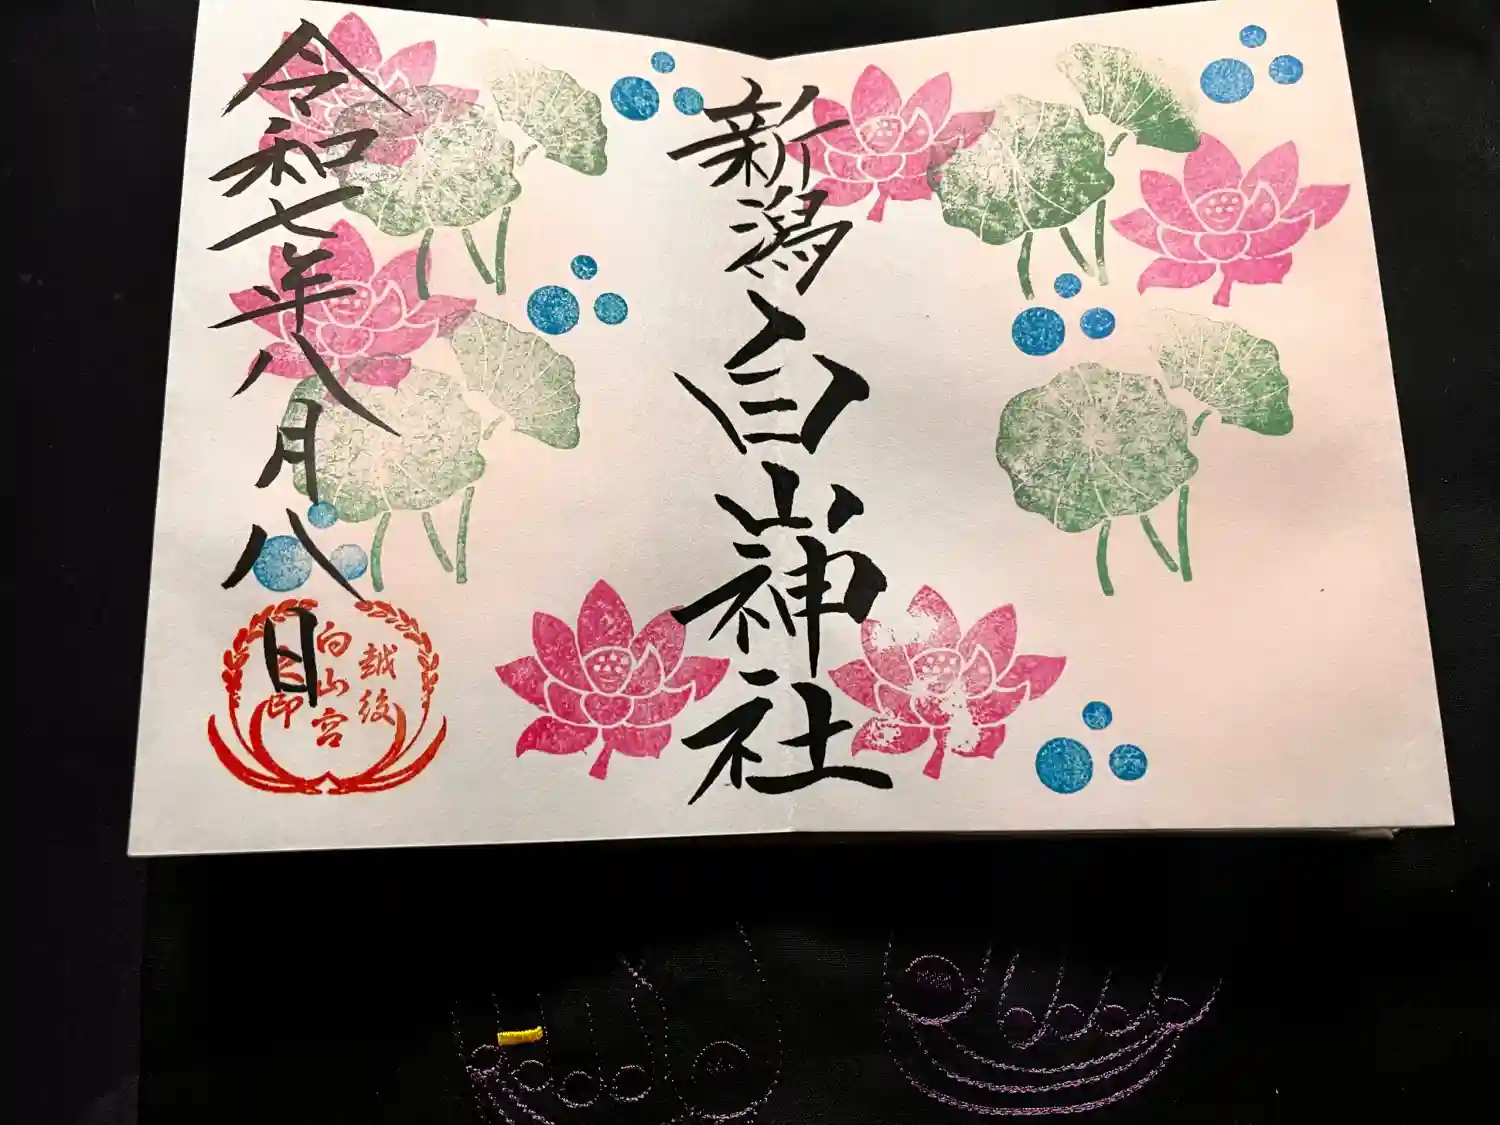 新潟白山神社
令和七年八月八日
越後
白山宮